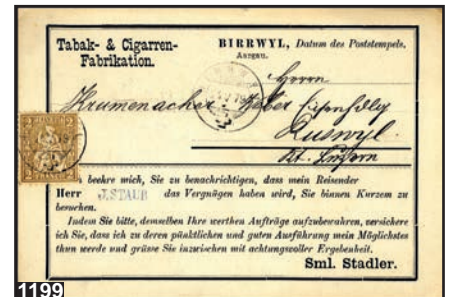 Tabak- & Cigarren-
Fabrikation.
BIRRWYL, Datum des Poststempels.
Aargau.
Herrn
Krumenacher
Ruswyl.
Kt. Luzern
beehre mich, Sie zu benachrichtigen, dass mein Reisender
Herr J. STAUB das Vergnügen haben wird, Sie binnen Kurzem zu
besuchen.
Indem Sie bitte, demselben Ihre werthen Aufträge aufzubewahren, versichere
ich Sie, dass ich zu deren pünktlichen und guten Ausführung mein Möglichstes
thun werde und grüsse Sie inzwischen mit achtungsvoller Ergebenheit.
Sml. Stadler.
1199